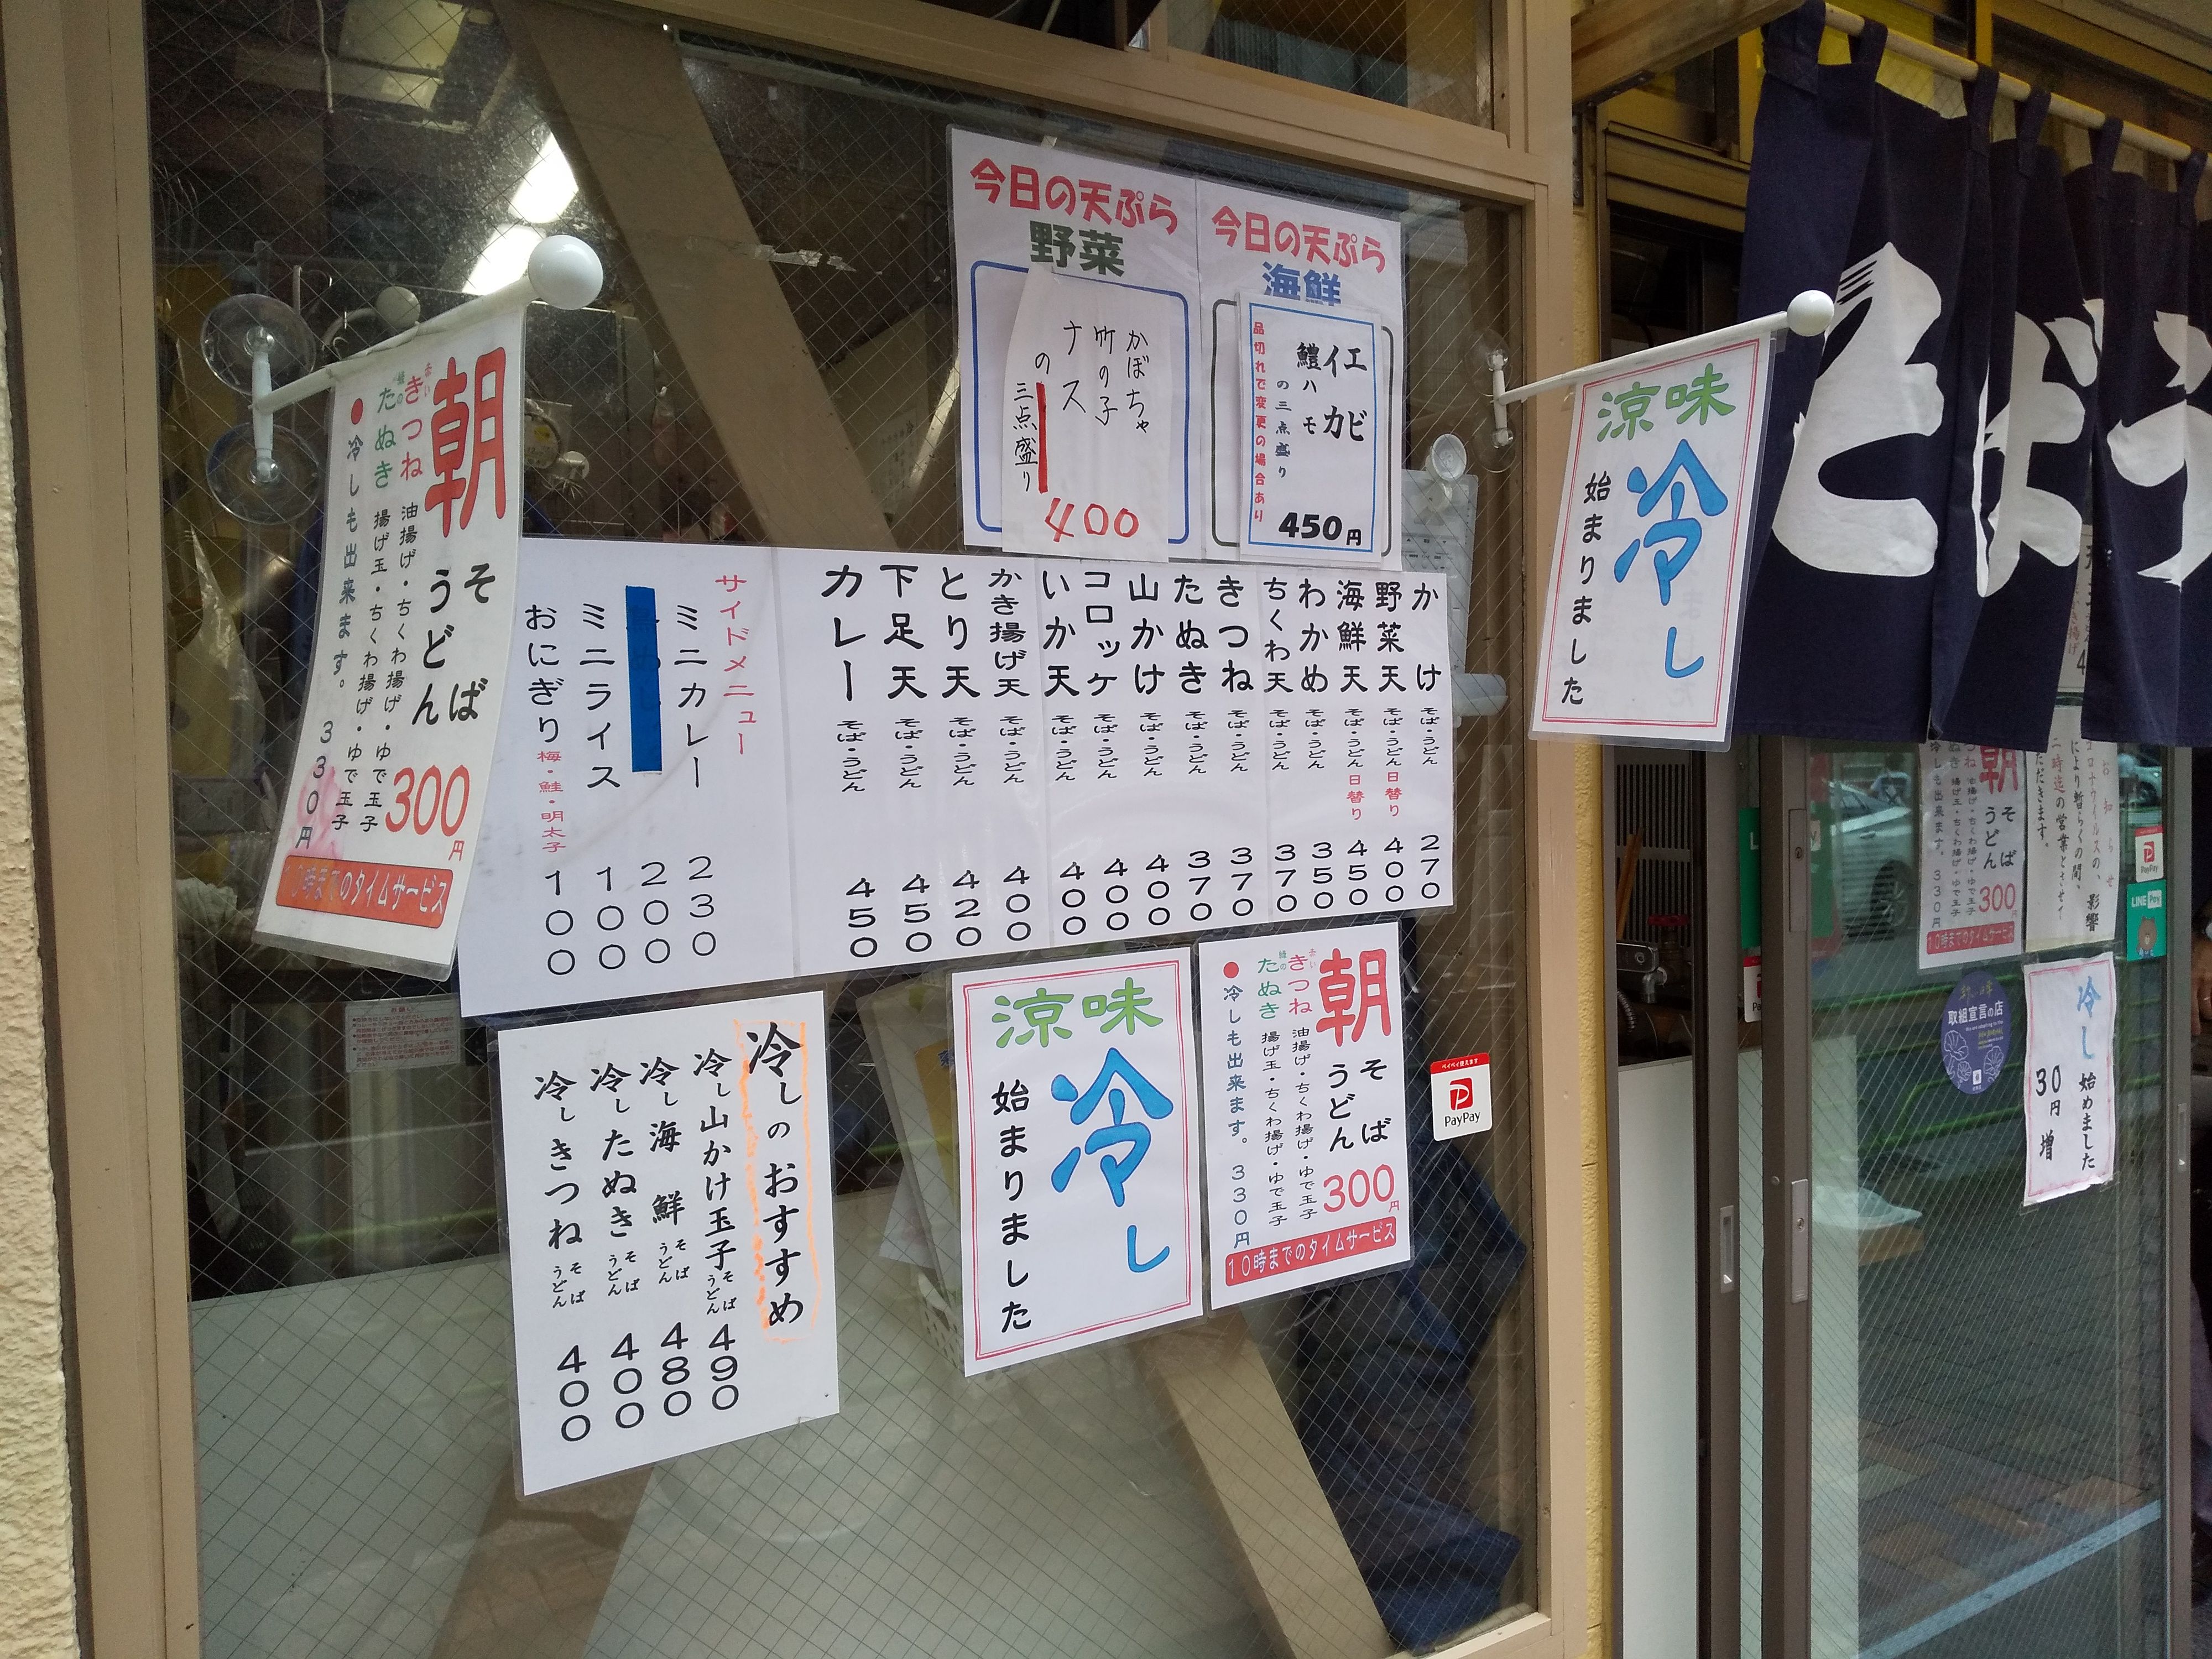 今日の天ぷら
野菜
かぼちゃ
竹の子
ナス
の三点盛り
400
今日の天ぷら
海鮮
エビ
イカ
鱧ハモ
の三点盛り
品切れで変更の場合あり
450円
朝
そば
うどん
300円
赤いきつね 油揚げ・ちくわ揚げ・ゆで玉子
緑のたぬき 揚げ玉・ちくわ揚げ・ゆで玉子
●冷しも出来ます。 330円
10時までのタイムサービス
かけ そば・うどん 270
野菜天 そば・うどん 日替り 400
海鮮天 そば・うどん 日替り 450
わかめ そば・うどん 350
ちくわ天 そば・うどん 370
きつね そば・うどん 370
たぬき そば・うどん 370
山かけ そば・うどん 400
コロッケ そば・うどん 400
いか天 そば・うどん 400
かき揚げ天 そば・うどん 400
とり天 そば・うどん 420
下足天 そば・うどん 450
カレー そば・うどん 450
サイドメニュー
ミニカレー 230
200
ミニライス 100
おにぎり 梅・鮭・明太子 100
冷しのおすすめ
冷し山かけ玉子 そば うどん 490
冷し海鮮 そば うどん 480
冷したぬき そば うどん 400
冷しきつね そば うどん 400
涼味
冷し
始まりました
朝
そば
うどん
300円
赤いきつね 油揚げ・ちくわ揚げ・ゆで玉子
緑のたぬき 揚げ玉・ちくわ揚げ・ゆで玉子
●冷しも出来ます。 330円
10時までのタイムサービス
ペイペイ使えます
PayPay
涼味
冷し
始まりました
そば
う
朝
そば
うどん
300
冷しも出来ます。 330円
10時までのタイムサービス
お知らせ
コロナウイルスの、影響
により暫らくの間、
二時迄の営業とさせて
ただきます。
PayPay
LINE Pay
取組宣言の店
冷し始めました
30円増